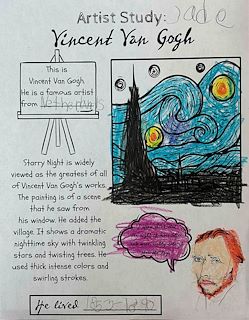 Artist Study: Jade
Vincent Van Gogh
This is
Vincent Van Gogh.
He is a famous artist
from Netherlands
Starry Night is widely
viewed as the greatest of all
of Vincent Van Gogh's works.
The painting is of a scene
that he saw from
his window. He added the
village. It shows a dramatic
nighttime sky with twinkling
stars and twisting trees. He
used thick intense colors and
swirling strokes.
He lived